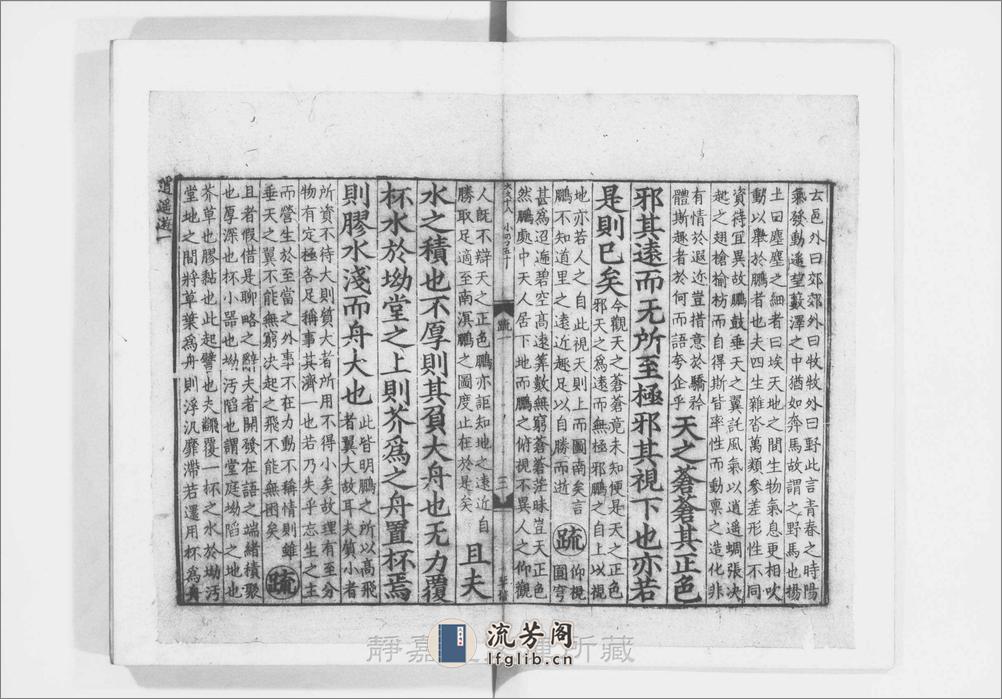 去邑外曰郊郊外曰牧牧外曰野此言青春之時陽
氣發動遥望藪澤之中猶如奔馬故謂之野馬也揚
土曰塵塵之細者曰埃天地之間生物氣息更相吹
動以舉於鵬者也夫四生雜沓萬類參差形性不同
資待宜異故鵬鼓垂天之翼託風氣以逍遥蜩張決
起之翅搶榆枋而自得斯皆率性而動禀之造化非
有情於遐近豈措意於驕矜
體斯趣者於何而語夸企乎
天之蒼蒼其正色
邪其遠而无所至極邪其視下也亦若
是則已矣
今觀天之蒼蒼竟未知便是天之正色
邪天之為遠而無極邪鵬之自上以視
地亦若人之自此視天則上而圖南矣言
鵬不知道里之遠近趣足以自勝而逝
疏
仰視
圓穹
甚為迢遞碧空高遠筭數無窮蒼蒼茫昧豈天正色
然鵬處中天人居下地而鵬之俯視不異人之仰觀
疏一
人既不辯天之正色鵬亦詎知地之遠近自
勝取足適至南溟鵬之圖度止在於是矣
且夫
水之積也不厚則其負大舟也无力覆
杯水於坳堂之上則芥為之舟置杯焉
則膠水淺而舟大也
此皆明鵬之所以高飛
者翼大故耳夫質小者
所資不待大則質大者所用不得小矣故理有至分
物有定極各足稱事其濟一也若乃失乎忘生之主
而營生於至當之外事不在力動不稱情則雖
垂天之翼不能無窮決起之飛不能無困矣
疏
且者假借是聊略之辭夫者開發在語之端緒積聚
也厚深也杯小器也坳污陷也謂堂庭坳陷之地也
芥草也膠黏也此起譬也夫飜覆一杯之水於坳污
堂地之間將草葉為舟則浮汎靡滯若還用杯為舟
逍遥遊一
流芳阁
lfglib.cn